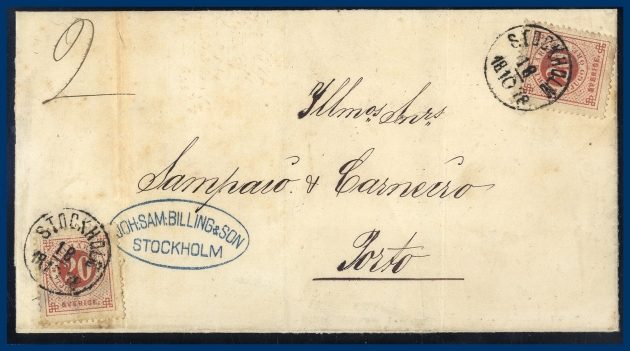 2
STOCKHOLM
18
SVERIGE.
Illmos Snrs
Sampaio & Carneiro
Porto
JOH:SAM:BILLING & SON
STOCKHOLM
STOCKHOLM
18
20
SVERIGE.